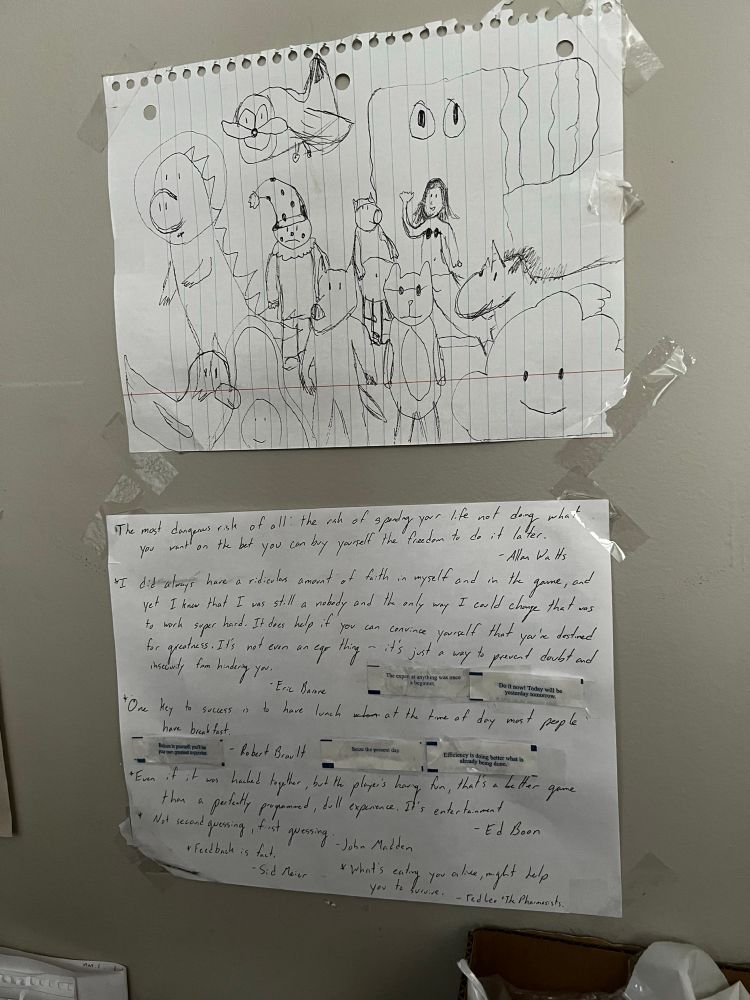 The most dangerous risk of all: the risk of spending your life not doing what
you want on the bet you can buy yourself the freedom to do it later.
- Allan Watts
*I did always have a ridiculous amount of faith in myself and in the game, and
yet I knew that I was still a nobody and the only way I could change that was
to work super hard. It does help if you can convince yourself that you're destined
for greatness. It's not even an ego thing - it's just a way to prevent doubt and
insecurity from hindering you.
- Eric Barone
The expert at anything was once
a beginner.
Do it now! Today will be
yesterday tomorrow.
*One key to success is to have lunch at the time of day most people
have breakfast.
Believe in yourself, you'll be
you own greatest supporter.
- Robert Brault
Seize the present day.
Efficiency is doing better what is
already being done.
*Even if it was hacked together, but the player's having fun, that's a better game
than a perfectly programmed, dull experience. It's entertainment
- Ed Boon
* Not second guessing, first guessing.
- John Madden
*Feedback is fact.
- Sid Meier
* What's eating you alive, might help
you to survive.
- Ted Leo + The Pharmacists.